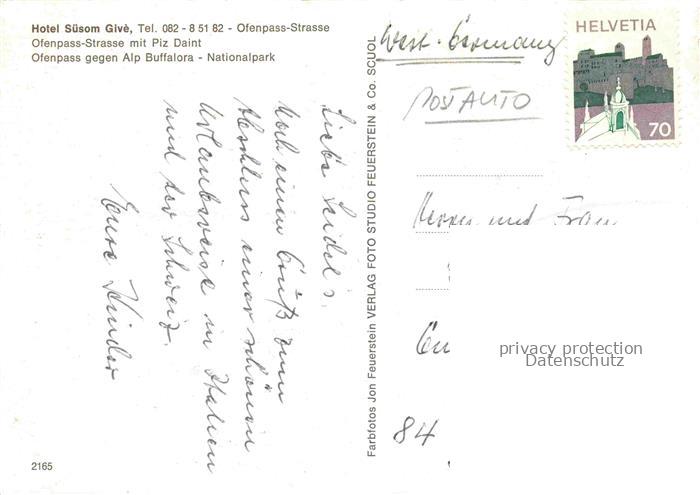 Hotel Süsom Givè, Tel. 082 - 8 51 82 - Ofenpass-Strasse
Ofenpass-Strasse mit Piz Daint
Ofenpass gegen Alp Buffalora - Nationalpark
Liebe Seidel's,
Noch einen Gruß zum
Abschluss einer schönen
Urlaubsreise in Italien
und der Schweiz.
Eure Kinder
2165
Farbfotos Jon Feuerstein VERLAG FOTO STUDIO FEUERSTEIN & Co. SCUOL
West-Germany
HELVETIA
70
POSTAUTO
Herrn und Frau
privacy protection
Datenschutz
84